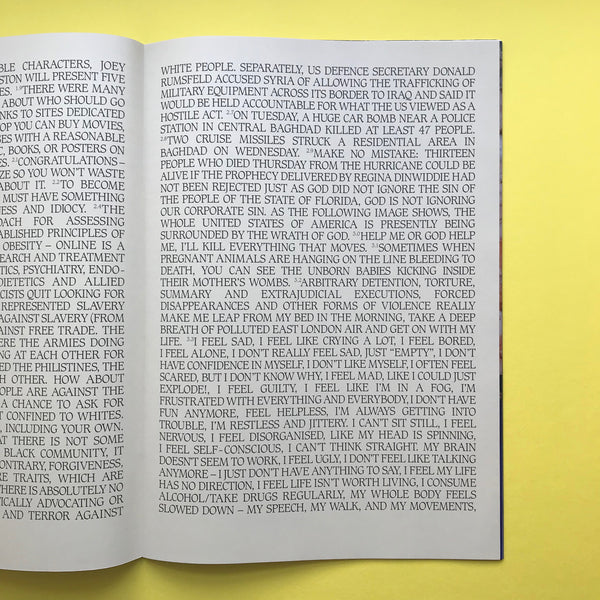 BLE CHARACTERS, JOEY
STON WILL PRESENT FIVE
ES. 1.9THERE WERE MANY
ABOUT WHO SHOULD GO
NKS TO SITES DEDICATED
OP YOU CAN BUY MOVIES,
SES WITH A REASONABLE
C, BOOKS, OR POSTERS ON
ES. 2.1CONGRATULATIONS –
ZE SO YOU WON'T WASTE
ABOUT IT. 2.2TO BECOME
MUST HAVE SOMETHING
NESS AND IDIOCY. 2.4"THE
OACH FOR ASSESSING
STABLISHED PRINCIPLES OF
OBESITY – ONLINE IS A
SEARCH AND TREATMENT
TICS, PSYCHIATRY, ENDO-
DIETETICS AND ALLIED
CISTS QUIT LOOKING FOR
REPRESENTED SLAVERY
AGAINST SLAVERY (FROM
AINST FREE TRADE. THE
ERE THE ARMIES DOING
NG AT EACH OTHER FOR
ED THE PHILISTINES, THE
CH OTHER. HOW ABOUT
OPLE ARE AGAINST THE
A CHANCE TO ASK FOR
T CONFINED TO WHITES.
INCLUDING YOUR OWN.
AT THERE IS NOT SOME
BLACK COMMUNITY, IT
ONTRARY, FORGIVENESS,
RE TRAITS, WHICH ARE
HERE IS ABSOLUTELY NO
ICALLY ADVOCATING OR
AND TERROR AGAINST
WHITE PEOPLE. SEPARATELY, US DEFENCE SECRETARY DONALD
RUMSFELD ACCUSED SYRIA OF ALLOWING THE TRAFFICKING OF
MILITARY EQUIPMENT ACROSS ITS BORDER TO IRAQ AND SAID IT
WOULD BE HELD ACCOUNTABLE FOR WHAT THE US VIEWED AS A
HOSTILE ACT. 2.5ON TUESDAY, A HUGE CAR BOMB NEAR A POLICE
STATION IN CENTRAL BAGHDAD KILLED AT LEAST 47 PEOPLE.
2.6TWO CRUISE MISSILES STRUCK A RESIDENTIAL AREA IN
BAGHDAD ON WEDNESDAY. 2.9MAKE NO MISTAKE: THIRTEEN
PEOPLE WHO DIED THURSDAY FROM THE HURRICANE COULD BE
ALIVE IF THE PROPHECY DELIVERED BY REGINA DINWIDDIE HAD
NOT BEEN REJECTED JUST AS GOD DID NOT IGNORE THE SIN OF
THE PEOPLE OF THE STATE OF FLORIDA, GOD IS NOT IGNORING
OUR CORPORATE SIN. AS THE FOLLOWING IMAGE SHOWS, THE
WHOLE UNITED STATES OF AMERICA IS PRESENTLY BEING
SURROUNDED BY THE WRATH OF GOD. 3.0HELP ME OR GOD HELP
ME, I'LL KILL EVERYTHING THAT MOVES. 3.1SOMETIMES WHEN
PREGNANT ANIMALS ARE HANGING ON THE LINE BLEEDING TO
DEATH, YOU CAN SEE THE UNBORN BABIES KICKING INSIDE
THEIR MOTHER'S WOMBS. 3.2ARBITRARY DETENTION, TORTURE,
SUMMARY AND EXTRAJUDICIAL EXECUTIONS, FORCED
DISAPPEARANCES AND OTHER FORMS OF VIOLENCE REALLY
MAKE ME LEAP FROM MY BED IN THE MORNING, TAKE A DEEP
BREATH OF POLLUTED EAST LONDON AIR AND GET ON WITH MY
LIFE. 3.3I FEEL SAD, I FEEL LIKE CRYING A LOT, I FEEL BORED,
I FEEL ALONE, I DON'T REALLY FEEL SAD, JUST "EMPTY", I DON'T
HAVE CONFIDENCE IN MYSELF, I DON'T LIKE MYSELF, I OFTEN FEEL
SCARED, BUT I DON'T KNOW WHY, I FEEL MAD, LIKE I COULD JUST
EXPLODE!, I FEEL GUILTY, I FEEL LIKE I'M IN A FOG, I'M
FRUSTRATED WITH EVERYTHING AND EVERYBODY, I DON'T HAVE
FUN ANYMORE, FEEL HELPLESS, I'M ALWAYS GETTING INTO
TROUBLE, I'M RESTLESS AND JITTERY. I CAN'T SIT STILL, I FEEL
NERVOUS, I FEEL DISORGANISED, LIKE MY HEAD IS SPINNING,
I FEEL SELF-CONSCIOUS, I CAN'T THINK STRAIGHT. MY BRAIN
DOESN'T SEEM TO WORK, I FEEL UGLY, I DON'T FEEL LIKE TALKING
ANYMORE – I JUST DON'T HAVE ANYTHING TO SAY, I FEEL MY LIFE
HAS NO DIRECTION, I FEEL LIFE ISN'T WORTH LIVING, I CONSUME
ALCOHOL/TAKE DRUGS REGULARLY, MY WHOLE BODY FEELS
SLOWED DOWN – MY SPEECH, MY WALK, AND MY MOVEMENTS,